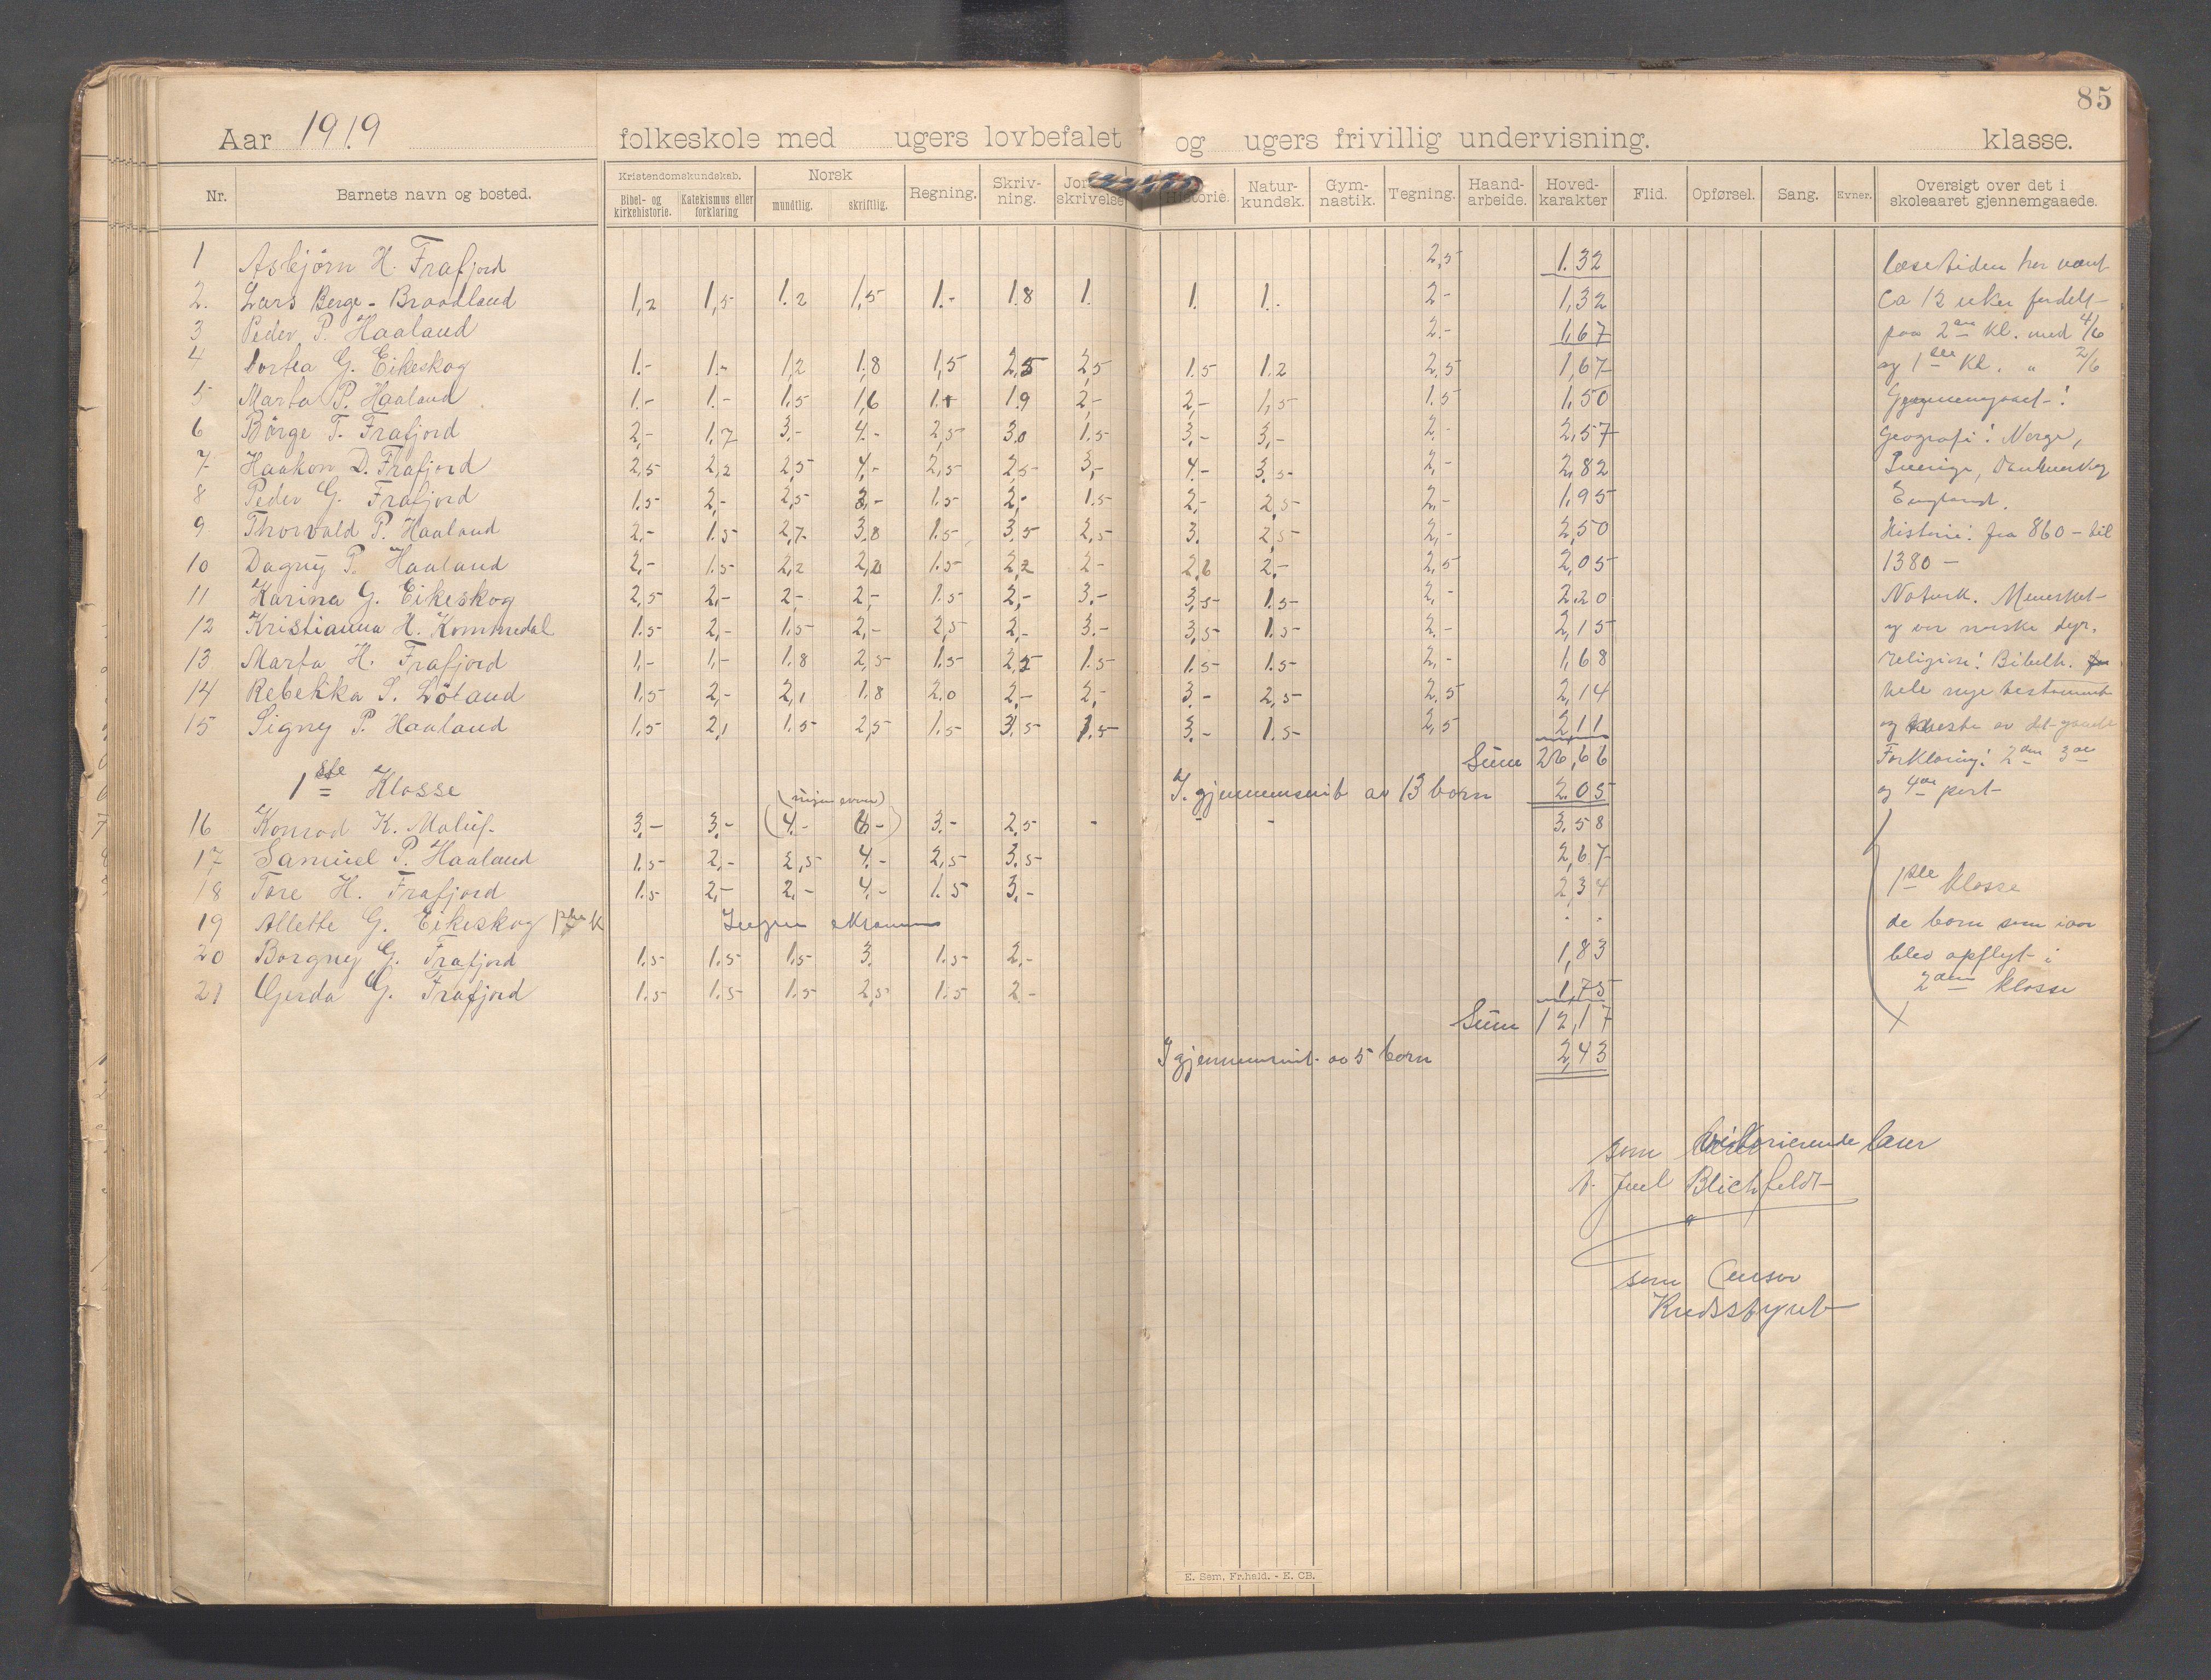 85
Aar 1919 folkeskole med ugers lovbefalet og ugers frivillig undervisning. klasse.
Nr. Barnets navn og bosted. Kristendomskundskab. Bibel- og kirkehistorie. Katekismus eller forklaring Norsk mundtlig. skriftlig. Regning. Skriv-ning. Historie. Natur-kundsk. Gym-nastik. Tegning. Haand-arbeide. Hoved-karakter Flid. Opførsel. Sang. Evner. Oversigt over det i skoleaaret gjennemgaaede.
1 Asbjörn H. Frafjord 2,5 1.32
2. Lars Berge - Braadland 1,2 1,5 1.2 1,5 1.- 1.8 1. 1. 1.- 2- 1,32 Ca 12 uker fordelt
3 Peder P. Haaland 2.- 1,67 paa 2en Kl. med 4/6
4 Dortea G. Eikeskog 1.- 1.- 1,2 1.8 1,5 2,5 2,5 1.5 1.2 2.5 1,67 og 1ste Kl. " 2/6
5 Marta P. Haaland 1.- 1.- 1.5 1,6 1.- 1.9 2,- 2,- 1,5 1.5 1,50
6 Börge T. Frafjord 2,- 1.7 3.- 4.- 2,5 3.0 1.5 3,- 3,- 2,- 2,57 Geografi: Norge,
7 Haakon D. Frafjord 2,5 2,2 2,5 4,- 2,5 2,5 3,- 4.- 3.5- 2,- 2,82 Sverige, Danmark og
8 Peder G. Frafjord 1.5 2,- 2,5 3,- 1.5 2,- 1.5 2,- 2,5 2,- 1,95 England.
9 Thorvald P. Haaland 2,- 1.5 2,7 3.8 1.5 3.5 2,5 3. 2,5 2,- 2,50 Historie: fra 860 - til
10 Dagny P. Haaland 2,- 1.5 2,2 2,8 1.5 2,2 2- 2,6 2,- 2,5 2,05 1380 -
11 Karina G. Eikeskog 2,5 2,- 2,- 2,- 1.5 2,- 3.- 3,5 1.5 2,- 2.20 Naturk. Mennesket
12 Kristianna H. Kommedal 1.5 2,- 1.5 2,- 2,5 2,- 3.- 3,5 1.5 2,- 2,15 og vor norske dyr.
13 Marta H. Frafjord 1,- 1,- 1.8 2,5 1.5 2,5 1.5 1.5 1.5 2,- 1,68 religion: Bibelh.
14 Rebekka S. Löland 1.5 2,- 2,1 1.8 2.0 2,- 2,- 3.- 2,5 2,5 2,14 hele nye testament
15 Signy P. Haaland 1.5 2,1 1.5 2,5 1.5 3.5 1.5 3.- 1.5 2,5 2,11
Sum 26,66 Forklaring: 2den 3de
1ste Klasse I. gjennemsnit av 13 born 2.05 og 4de part
16 Konrad K. Maluf. 3.- 3.- (4.- 6-) 3.- 2,5 - - - 3.58
17 Samuel P. Haaland 1.5 2,- 2,5 4.- 2,5 3.5 2,67
18 Tore H. Frafjord 1.5 2,- 2,- 4,- 1.5 3,- 2,34 1ste klasse
19 Allette G. Eikeskog Ingen - - de born som iaar
20 Borgny G. Frafjord 1.5 1.5 1.5 3. 1.5 2.- 1,83 blev opflyt i
21 Gerda G. Frafjord 1.5 1.5 1.5 2,5 1.5 2.- 1,75 2den klasse
Sum 12,17
I gjennemsnit av 5 born 2,43
som
Juel Blichfeldt
som Censor
Kredsstyret
E. Sem, Fr.hald. - E. CB.